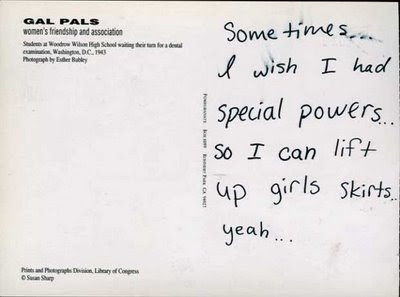 GAL PALS
women's friendship and association
Students at Woodrow Wilson High School waiting their turn for a dental
examination, Washington, D.C., 1943
Photograph by Esther Bubley
Prints and Photographs Division, Library of Congress
© Susan Sharp
POMEGRANATE BOX 6099 ROHNERT PARK CA 94927
Some times...
I wish I had
special powers...
so I can lift
up girls skirts..
yeah...